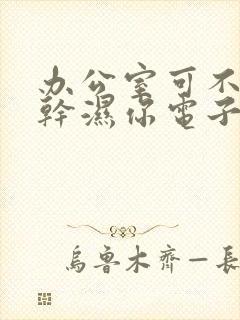 办公室可不
幹濕你電子
烏魯木齊—長